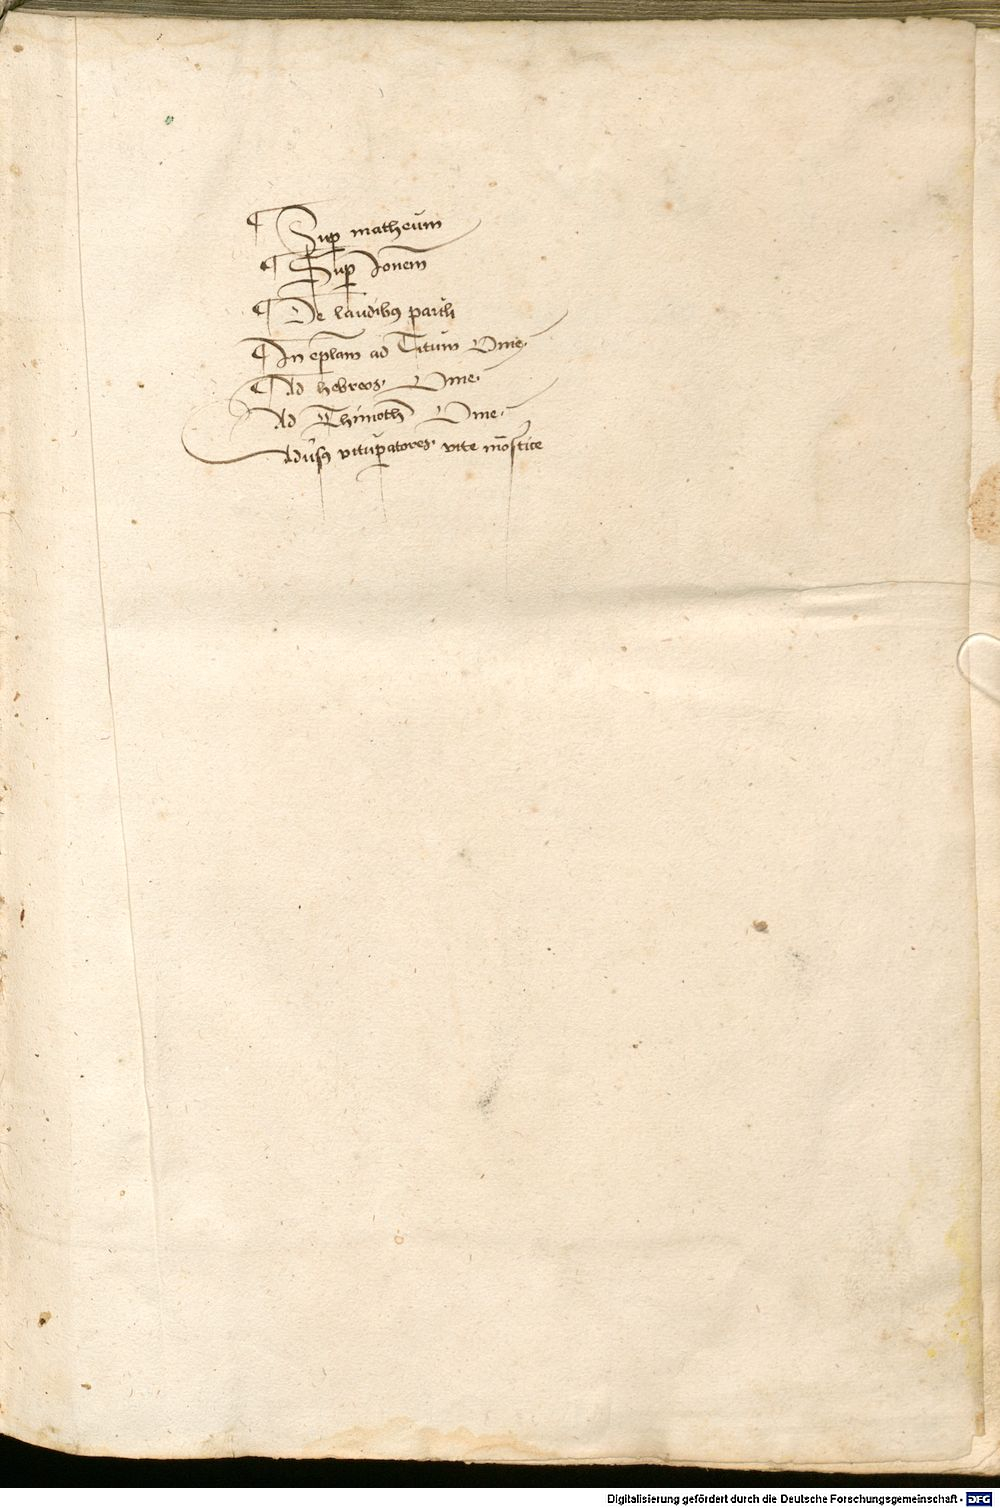 ¶ Sup matheum
¶ Sup Ionem
¶ De laudibus pauli
¶ In eplam ad Titum Ome.
¶ Ad hebreos. Ome.
Ad Thimoth Ome.
Aduˀsꝰ vituꝑatores vite mōstice
Digitalisierung gefördert durch die Deutsche Forschungsgemeinschaft - DFG